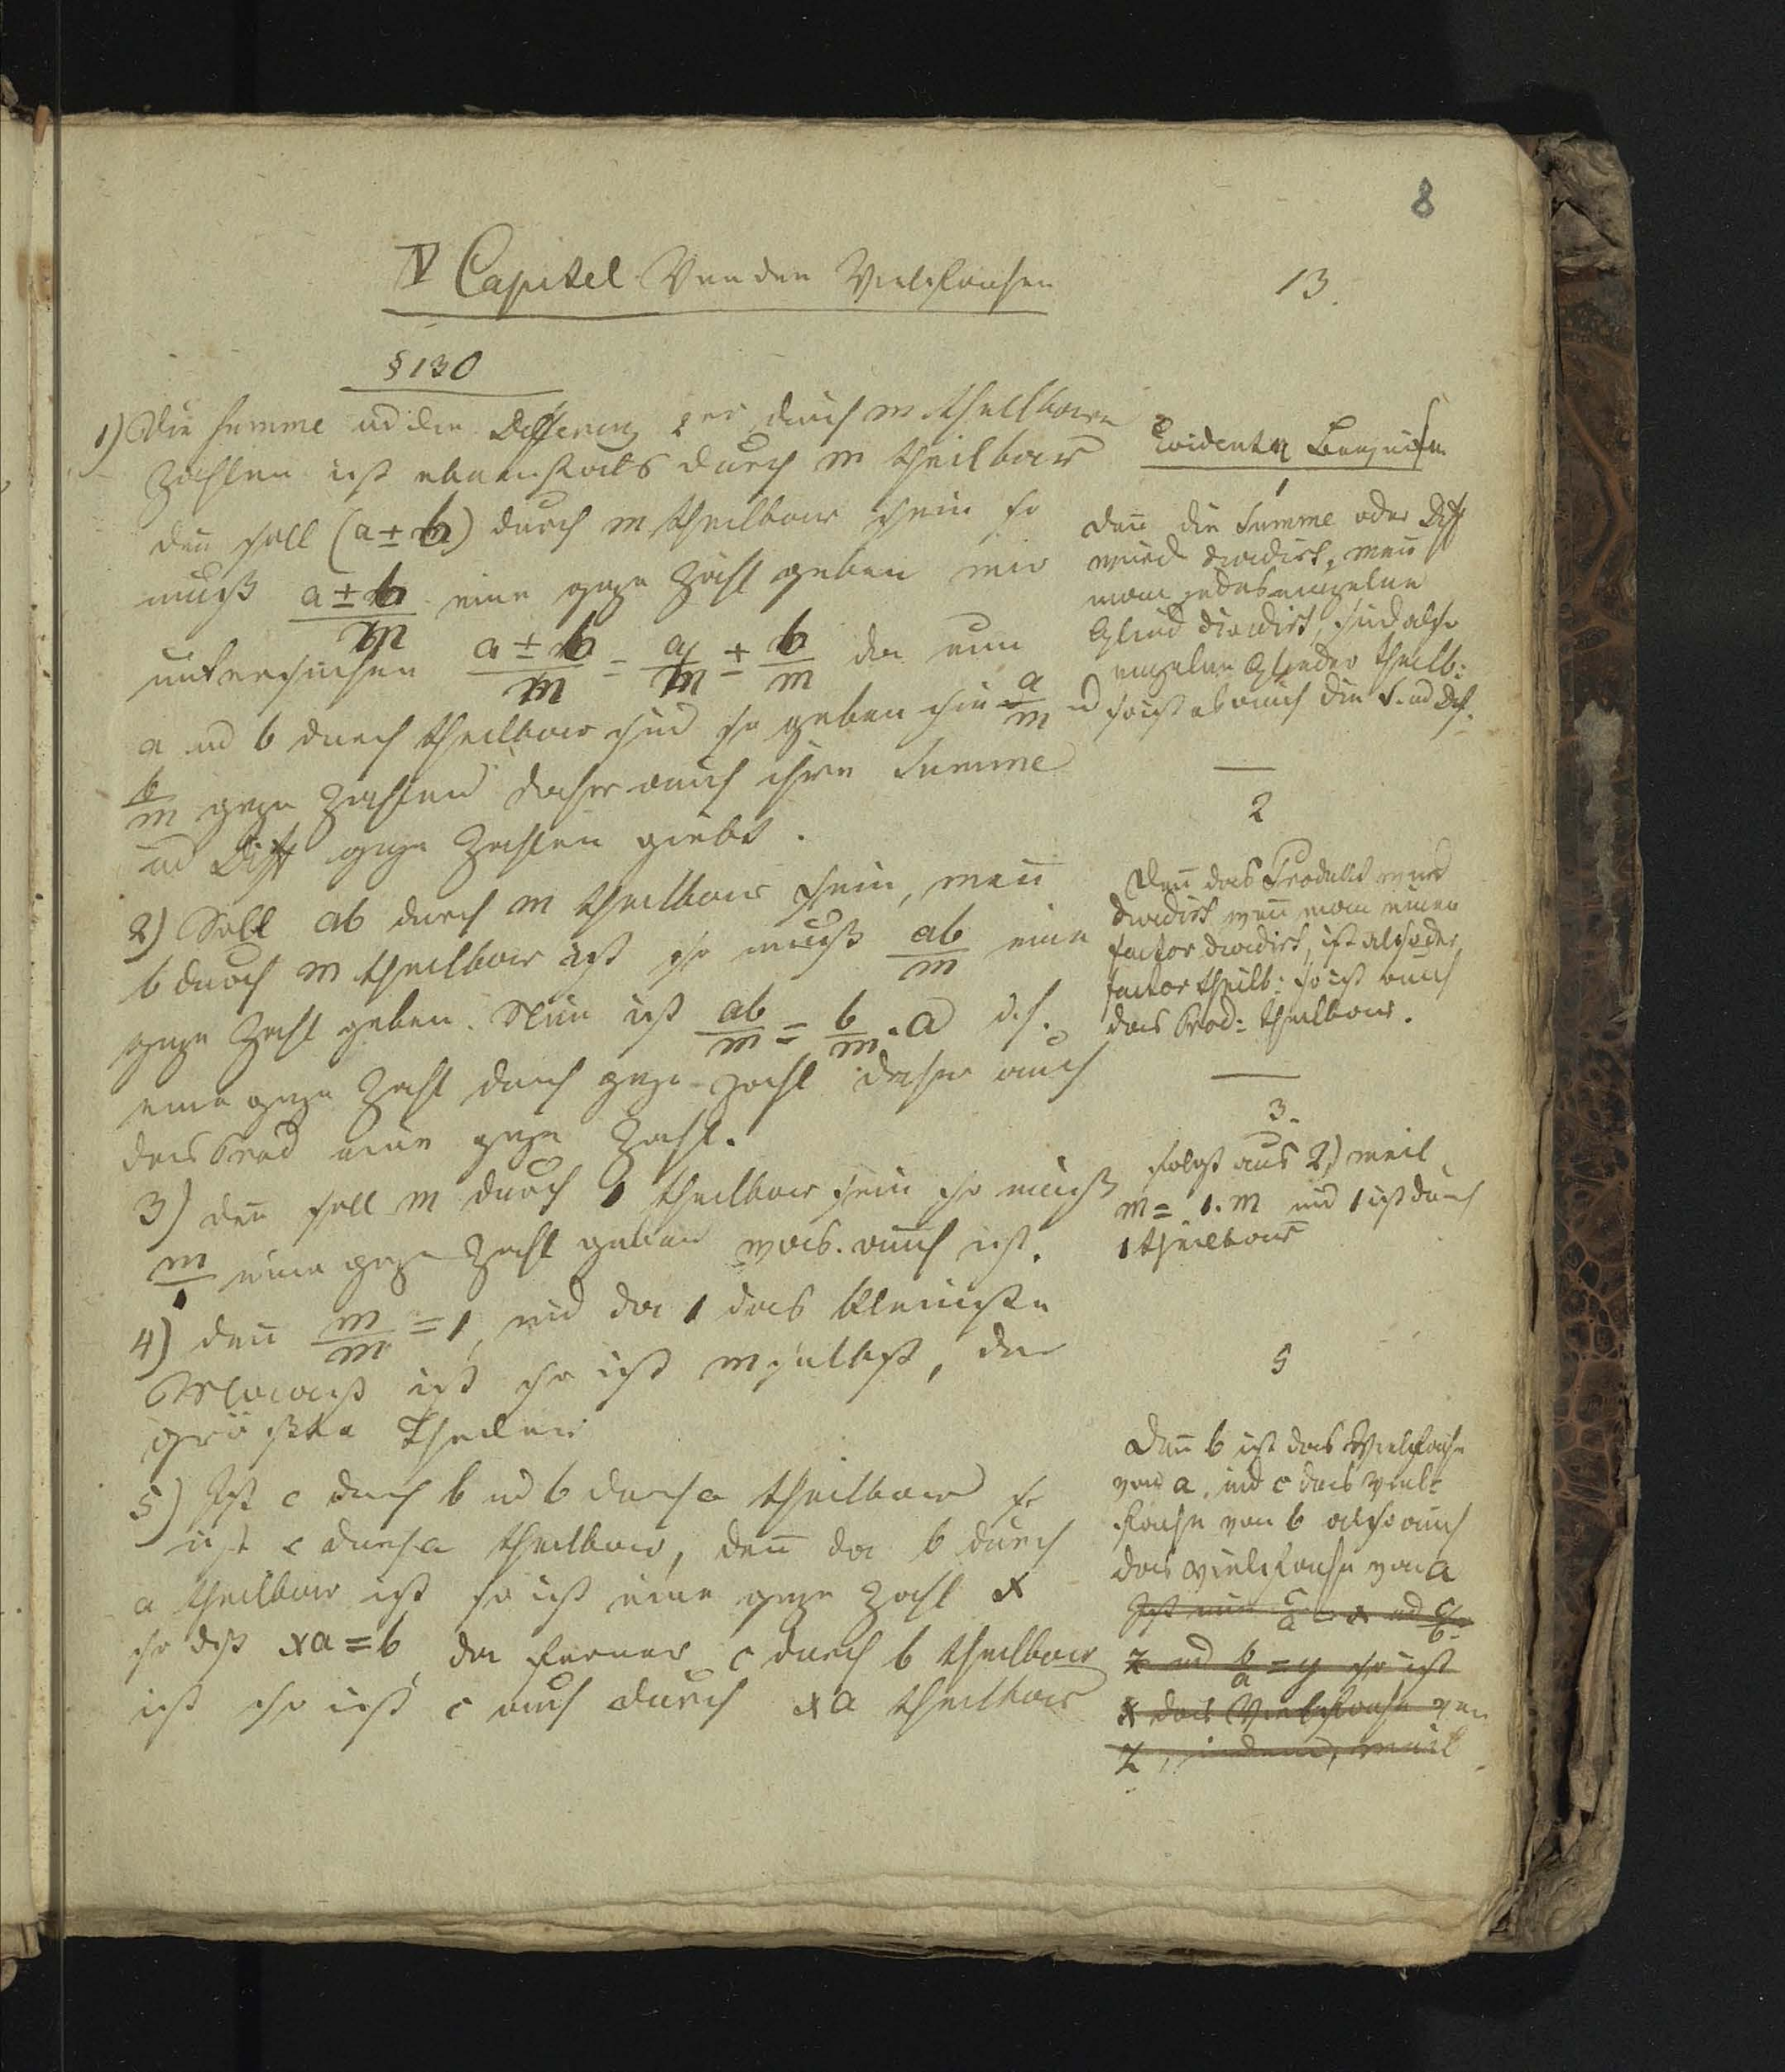 8
IV Capitel Von den Vielfachen
13.
§ 130
1) Die Summe ud die Differenz 2er durch m theilbare
Zahlen ist ebenfals durch m theilbar
den soll (a ± b) durch m theilbar sein so
muß (a ± b)/m eine gaze Zahl geben wir
untersuchen (a ± b)/m = a/m ± b/m da nun
a ud b durch theilbar sind so geben sie a/m ud
b/m gaze Zahlen daher auch ihre Summe
ud Diff gaze Zahlen giebt.
2) Soll ab durch m theilbar sein, wen
b durch m theilbar ist so muß ab/m eine
gaze Zahl geben. Nun ist ab/m = b/m . a d. h.
eine gaze Zahl durch gaze Zahl daher auch
das Prod eine gaze Zahl.
3) den soll m durch 1 theilbar sein so muß
m/1 eine gaze Zahl geben was auch ist.
4) den m/m = 1, und da 1 das kleinste
Maaß ist so ist m selbst, der
größte Theiler
5) Ist c durch b ud b durch a theilbar so
ist c durch a theilbar, den da b durch
a theilbar ist so ist eine gaze Zahl x
so dß xa = b, da ferner c durch b theilbar
ist so ist c auch durch xa theilbar
Evidenter Beweis
1
den die Summe oder Diff
wird dividirt, wen
man jedes einzelne
Glied dividirt, sind also
einzelne Glieder theilb:
so ist es auch die S. ud Diff.
2
den das Produkt wird
dividirt wen man einen
factor dividirt, ist also der
factor theilb: so ist auch
das Prod: theilbar.
3.
folgt aus 2) weil
m = 1. m und 1 ist durch
1 theilbar
5
den b ist das Vielfache
von a, und c das Viel-
fache von b also auch
das Vielfache von a
Ist nun c/a = x ud c/b =
z ud b/a = y so ist
x das Vielfache von
z, indem, weil